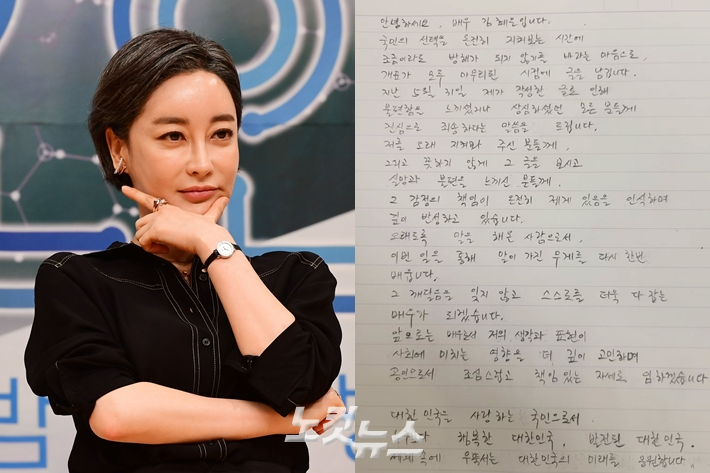 밤
노컷뉴스
안녕하세요. 배우 김혜은입니다.
국민의 선택을 온전히 지켜보는 시간에
조금이라도 방해가 되지 않기를 바라는 마음으로,
개표가 모두 마무리된 시점에 글을 남깁니다.
지난 5월 31일 제가 작성한 글로 인해
불편함을 느끼셨거나 상심하셨던 모든 분들께
진심으로 죄송하다는 말씀을 드립니다.
저를 오래 지켜봐 주신 분들께,
그리고 뜻하지 않게 그 글을 보시고
실망과 불편을 느끼신 분들께,
그 감정의 책임이 온전히 제게 있음을 인식하며
깊이 반성하고 있습니다.
오래도록 말을 해온 사람으로서,
이번 일을 통해 말이 가진 무게를 다시 한번
배웁니다.
그 깨달음을 잊지 않고 스스로를 더욱 다잡는
배우가 되겠습니다.
앞으로는 배우로서 저의 생각과 표현이
사회에 미치는 영향을 더 깊이 고민하며
공인으로서 조심스럽고 책임 있는 자세로 임하겠습니다
대한민국을 사랑하는 국민으로서,
행복한 대한민국, 발전된 대한민국,
세계 속에 우뚝서는 대한민국의 미래를 응원합니다.